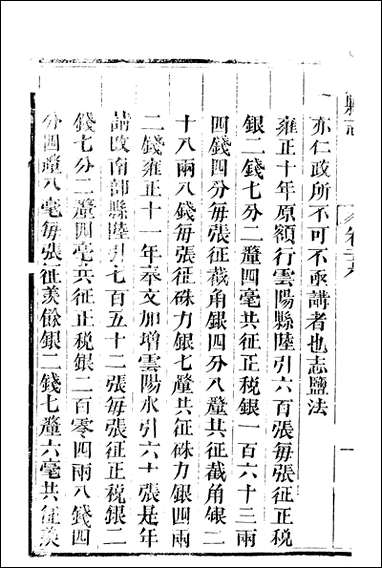 縣志
卷
一
亦仁政所不可不亟講者也志鹽法
雍正十年原額行雲陽縣陸引六百張每張征正稅
銀二錢七分二釐四毫共征正稅銀一百六十三兩
四錢四分每張征截角銀四分八釐共征截角銀二
十八兩八錢每張征硃力銀七釐共征硃力銀四兩
二錢雍正十一年奉文加增雲陽水引六十張是年
請改南部縣陸引七百五十二張每張征正稅銀二
錢七分二釐四毫共征正稅銀二百零四兩八錢四
分四釐八毫每張征羨餘銀二錢七釐六毫共征羨